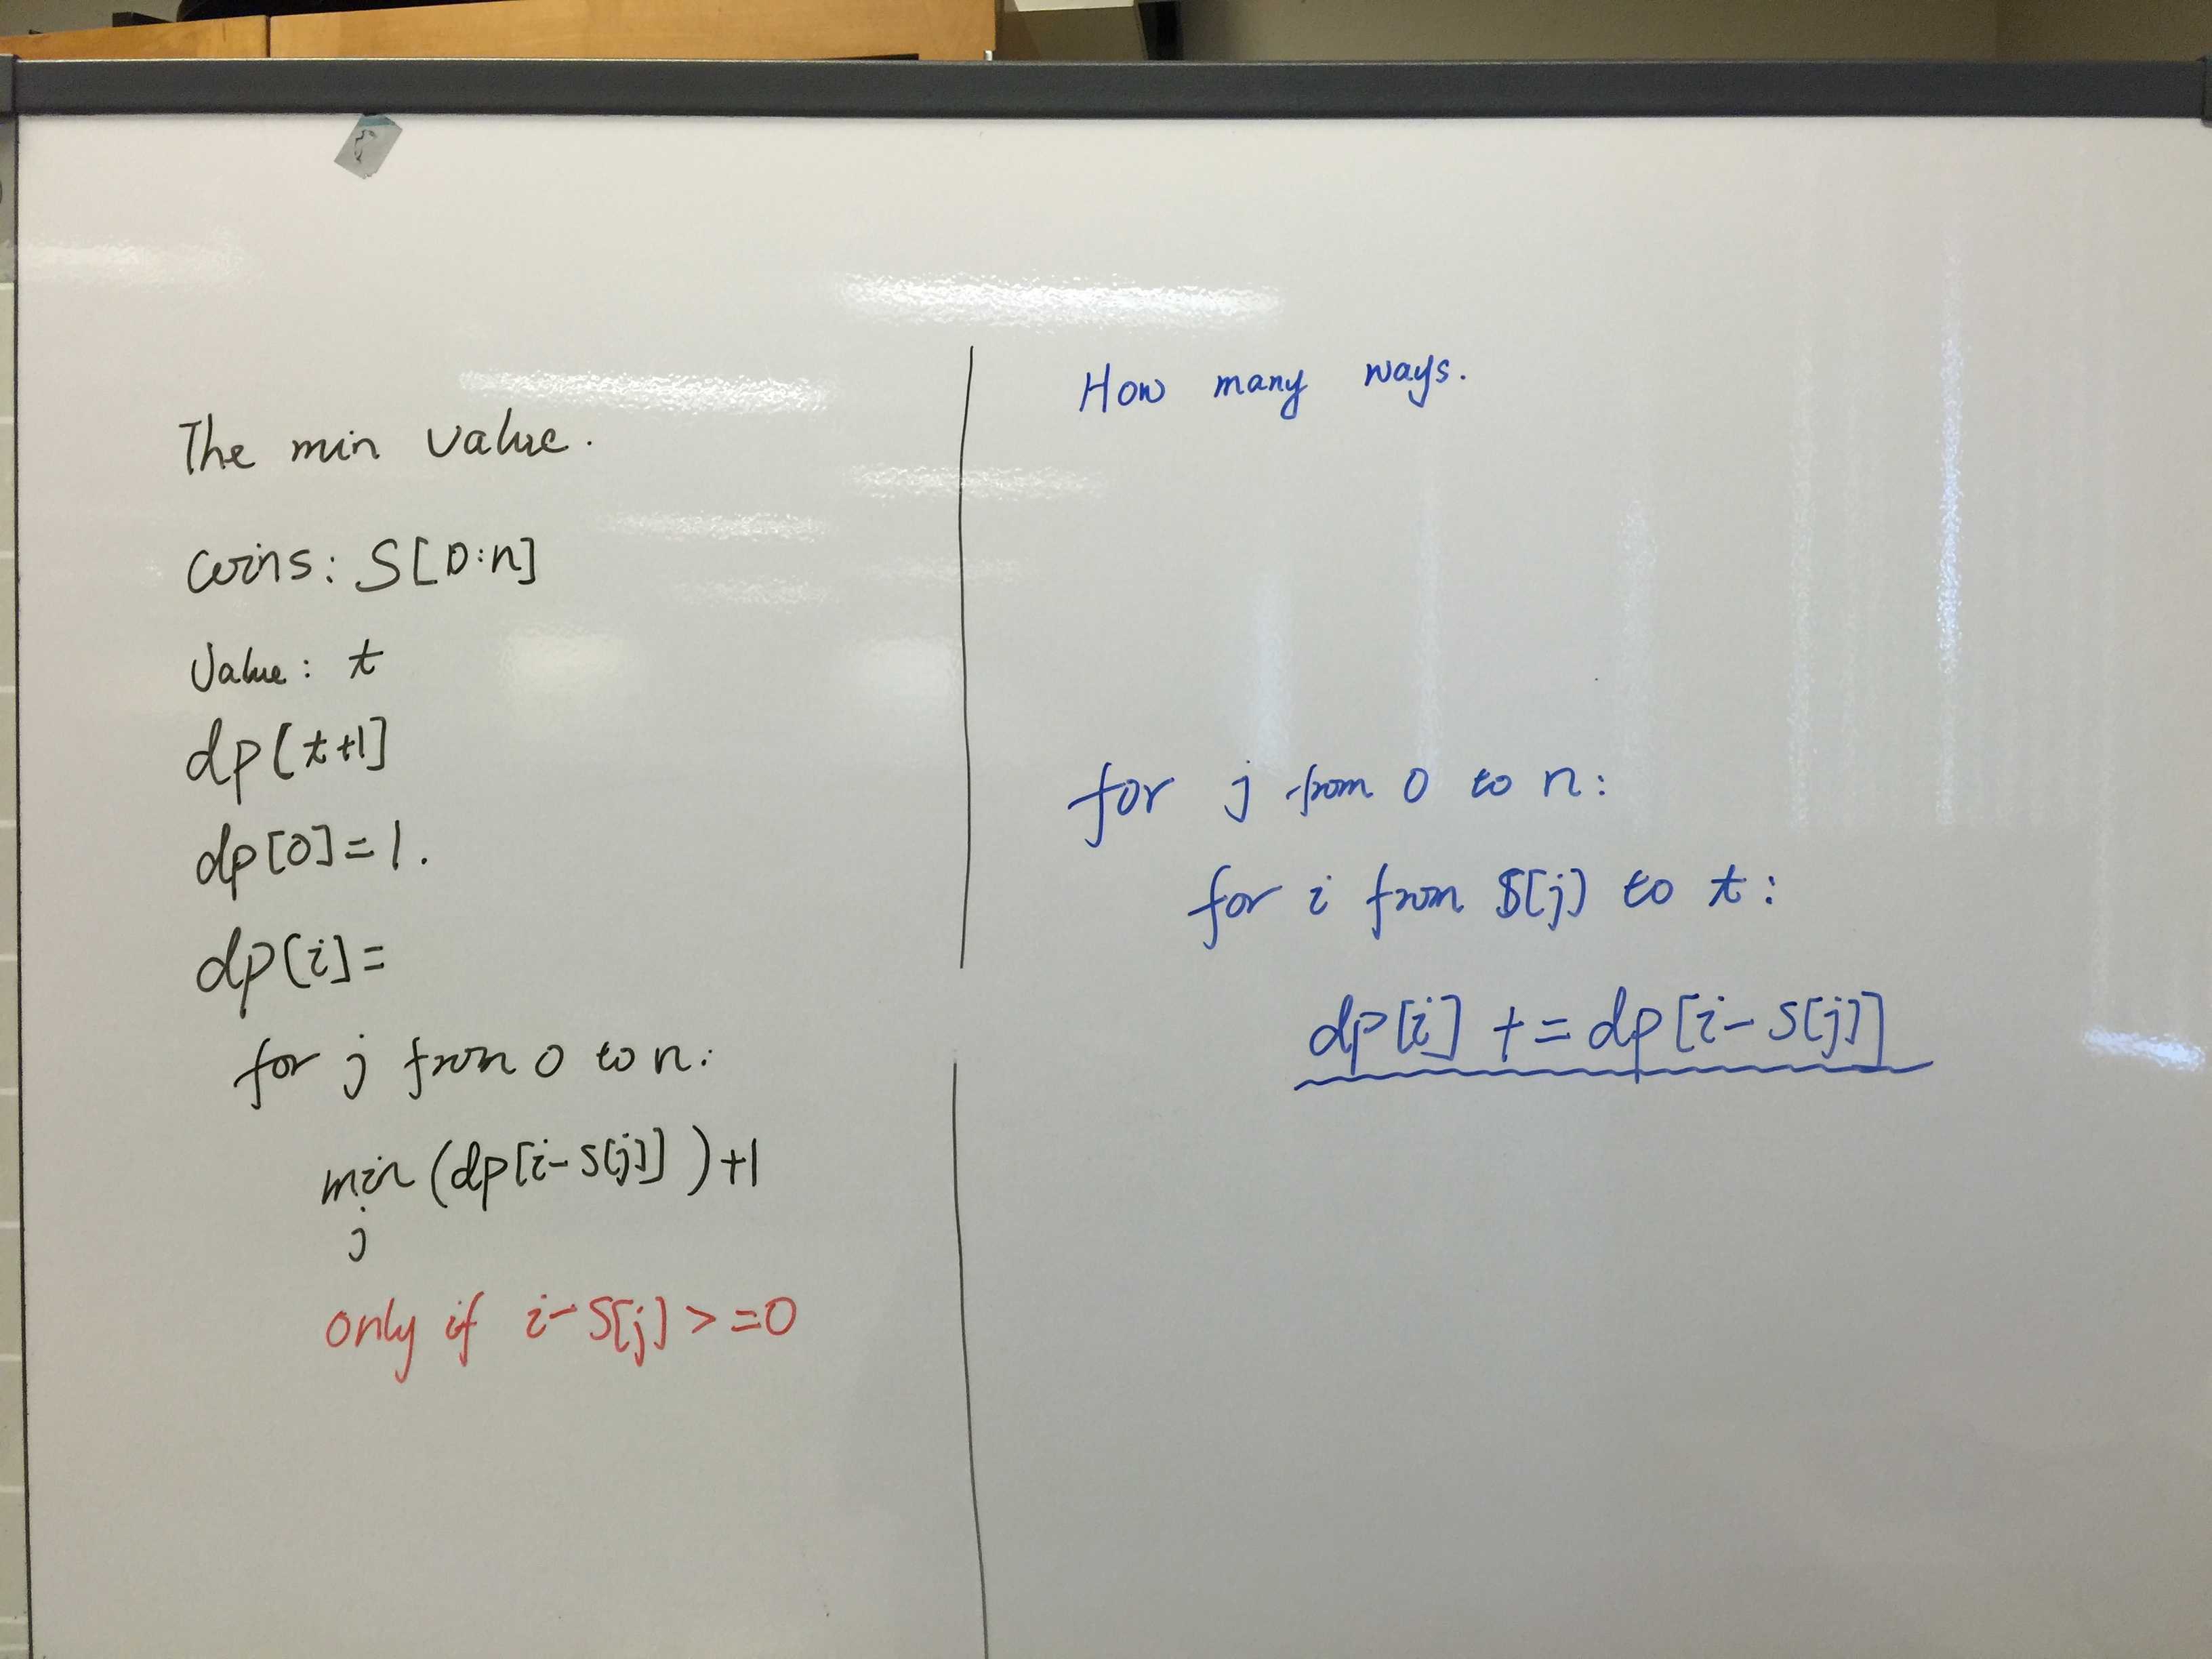 The min value.
coins: S[0:n]
Value: t
dp[t+1]
dp[0]=1.
dp[i]=
for j from 0 to n:
min (dp[i-S[j]] )+1
j
only if i-S[j] >=0
How many ways.
for j from 0 to n:
for i from S[j] to t:
dp[i] += dp[i-S[j]]